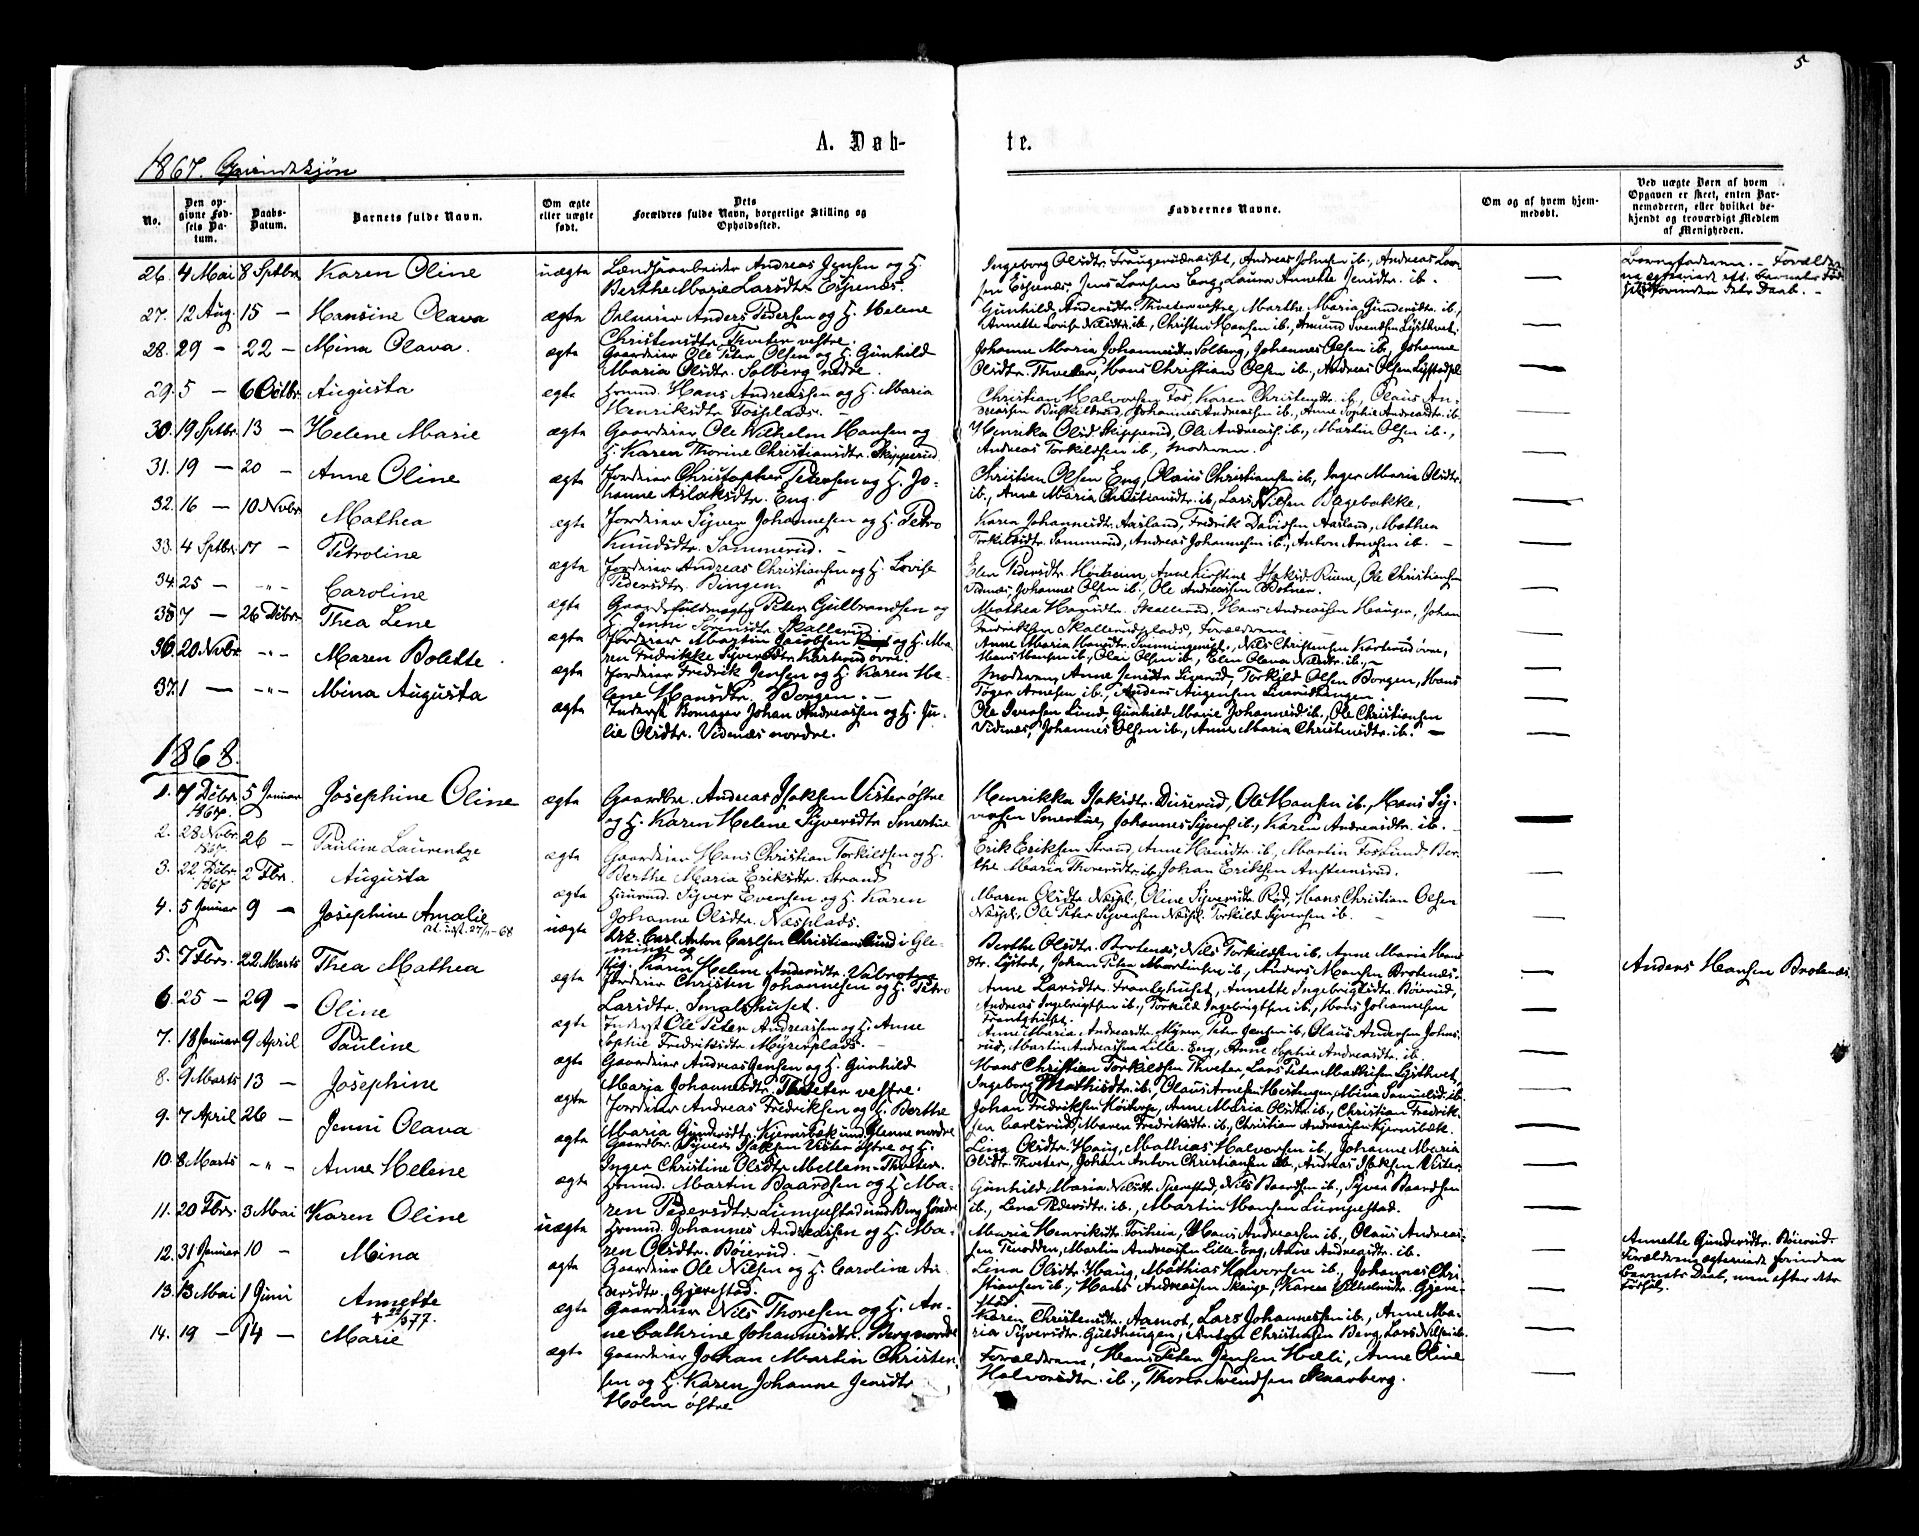 5
A. Døb-
te.
1867. Grindesjøn
No.
Den op-
givne Fød-
sels Da-
tum.
Daabs-
Datum.
Barnets fulde Navn.
Om ægte
eller uægte
født.
Dets
Forældres fulde Navn, borgerlige Stilling og
Opholdssted.
Faddernes Navne.
Om og af hvem hjem-
medøbt.
Ved uægte Børn af hvem
Opgaven er skeet, enten Bar-
nemoderen, eller hvilket be-
kjendt og troværdigt Medlem
af Menigheden.
26. 4 Mai 8 Sptbr Karen Oline uægte Lændsarbeider Andreas Jensen og H.
Berthe Marie Larsdtr. Espenes.
Ingeborg Olsdtr. Andreas Johnsen ib., Andreas Lar-
sen Espenes, Jens Larsen Eng, Laura Annette Jensdtr. ib. —
Barnefaderen. — Foræld-
27. 12 Aug. 15 — Hansine Olava ægte Anders Pedersen og H. Helene
Christensdtr. Thveter vestre.
Gunhild Andersdtr. Thveter vestre, Marthe Maria Gundersdtr. ib.,
Annette Lovise Nilsdtr. ib., Christen Hansen ib., Amund Svendsen Lysthvet. —
28. 29 — 22 — Mina Olava. ægte Gaardeier Ole Peter Olsen og H. Gunhild
Maria Olsdtr. Solberg nedre.
Johanne Maria Johannesdtr. Solberg, Johannes Olsen ib., Johanne
Olsdtr. Thveter, Hans Christian Olsen ib., Andreas Olsen —
29. 5 — 6 Octbr. Augusta ægte Husmd. Hans Andreassen og H. Maria
Henriksdtr. Fosplads. —
Christian Halvorsen Fos, Karen Christensdtr. ib., Olaus An-
dreassen Johannes Andreassen ib., Anne Sophie Andreasdtr. ib. —
30. 19 Sptbr. 13 — Helene Marie ægte Gaardeier Ole Wilhelm Hansen og
H. Karen Thorine Christiansdtr. Skipperud.
Henrika Olsd. Skipperud, Ole Andreass. ib., Martin Olsen ib.,
Andreas Torkildsen ib., Moderen. —
31. 19 — 20 — Anne Oline ægte Jordeier Christopher Pedersen og H. Jo-
hanne Aslaksdtr. Eng.
Christian Olsen Eng, Olaus Christiansen ib., Inger Maria Olsdtr.
ib., Anne Maria Christiansdtr. ib., Lars Nilsen Bøgebakke. —
32. 16 — 10 Nvbr Mathea ægte Jordeier Syver Johannesen og H. Petro
Knudsdtr. Sommerud. —
Karen Johannesdtr. Aasland, Fredrik Davidsen Aasland, Mathea
Torkildsdtr. Sommerud, Andreas Johannesen ib., Anton Arnesen ib. —
33. 4 Sptbr. 17 — Petroline ægte Jordeier Andreas Christiansen og H. Lovise
Pedersdtr. Bingen.
Elen Pedersdtr. Høiheim, Anne Kirstine Isaksd. Ole Christiansen
Videnæs, Johannes Olsen ib., Ole Andreassen Botner. —
34. 25 — -"- Caroline ægte Gaardsfuldmægtig Peter Gulbrandsen og
H. Jenni Sørensdtr. Skallerud.
Mathea Hansdtr. Skallerud, Hans Andreassen Hauger, Johan
Fredriksen Skallerudsplads, Forældrene. —
35. 7 — 26 Dcbr. Thea Lene ægte Jordeier Martin Jacobsen og H. Ma-
ren Fredrikke Syversdtr. Karterud øvre.
Anne Maria Hansdtr. Nils Christensen Karterud øvre,
Hans Hansen ib., Olai Olsen ib., Elen Olava Nilsdtr. ib. —
36. 20 Nvbr. -"- Maren Bolette. ægte Jordeier Fredrik Jensen og H. Karen He-
lene Hansdtr. Borgen. —
Moderen, Anne Jensdtr. Torkild Olsen Borgen, Hans
Arnesen ib., Anders —
37. 1 — -"- Mina Augusta ægte Inderst Bomager Johan Andreassen og H. Ju-
lie Olsdtr. Videnæs nordre.
Ole Iversen Lund, Gunhild Marie Johannesd. ib., Ole Christiansen
Videnæs, Johannes Olsen ib., Anne Maria Christensdtr. ib. —
1868.
1. 7 Dcbr. 1867. 5 Januar Josephine Oline ægte Gaardbr. Andreas Isaksen Vister østre
og H. Karen Helene Syversdtr. Smertue
Henrikka Isaksdtr. Ole Hansen ib., Hans Sy-
versen Smertue, Johannes Syvers. ib., Karen Andreasdtr. ib. —
2. 28 Nvbr. 1867. 26 — Pauline Laurentze ægte Gaardeier Hans Christian Torkildsen og H.
Berthe Maria Eriksdtr. Strand
Erik Eriksen Strand, Anne Hansdtr. ib., Martin Foslund, Ber-
the Maria Thoresdtr. ib., Johan Eriksen —
3. 22 Dcbr. 1867 2 Fbr. Augusta ægte Husmd. Syver Evensen og H. Karen
Johanne Olsdtr. Næsplads.
Maren Olsdtr. Næspl., Oline Syversdtr. Rød, Hans Christian Olsen
Næspl., Ole Peter Syversen Næspl., Torkild Syversen ib. —
4. 5 Januar 9 — Josephine Amalie
at. udst. 27/11-68
uægte Carl Anton Carlsen Christianslund i Gle-
minge og
Pig. Karen Helene Andersdtr.
Berthe Olsdtr. Brotenæs, Nils Torkildsen ib., Anne Maria Hans-
dtr. Johan Peter Martinsen ib., Anders Hansen Brotenæs. —
Anders Hansen Brotenæs.
5. 7 Fbr. 22 Marts Thea Mathea ægte Jordeier Christen Johannesen og H. Petro
Larsdtr. Smalshuset.
Anne Larsdtr. Frantshuset, Annette Ingebrigtsdtr. Bøierud,
Andreas Ingebrigtsen ib., Torkild Ingebrigtsen ib., Hans Johannesen
Frantshuset. —
6. 25 — 29 — Oline ægte Inderst Ole Peter Andreassen og H. Anne
Sophie Fredriksdtr. Myrenplads. —
Anne Maria Andreasdtr. Myren, Peter Jensen ib., Olaus Andersen Johns-
rud, Martin Andreassen Lille-Eng, Anne Sophie Andreasdtr. ib. —
7. 18 Januar 9 April Pauline ægte Gaardeier Andreas Jensen og H. Gunhild
Maria Johannesdtr. Thveter vestre.
Hans Christian Torkildsen Thveter, Lars Peter Mathisen Lysthvet,
Ingeborg Mathisdtr. ib., Olaus Arnesen Mina Samuelsd. ib. —
8. 9 Marts 13 — Josephine ægte Jordeier Andreas Fredriksen og H. Berthe
Maria Gundersdtr. Kjernsbæk und. Glenne nordre
Johan Fredriksen Anne Maria Olsdtr. ib., Christian Fredrik-
sen Carlsrud, Maren Fredriksdtr. ib., Christian Andreassen Kjernsbæk. —
9. 7 April 26 — Jenni Olava ægte Gaardbr. Syver Isaksen Vister østre og H.
Inger Christine Olsdtr. Mellem-Thveter.
Lina Olsdtr. Haug, Mathias Halvorsen ib., Johanne Maria
Olsdtr. Thveter, Johan Anton Christiansen ib., Andreas Isaksen Vister. —
10. 8 Marts -"- Anne Helene ægte Husmd. Martin Baardsen og H. Ma-
ren Pedersdtr. Lumpestad und. Berg søndre
Gunhild Maria Nilsdtr. Nils Baardsen ib., Syver Baardsen
ib., Lena Pedersdtr. ib., Martin Hansen Lumpestad. —
11. 20 Fbr. 3 Mai Karen Oline uægte Husmd. Johannes Andreassen og H. Ma-
ren Olsdtr. Bøierud. —
Maria Henriksdtr. Hans Andreassen ib., Olaus Andreas-
sen Tenodden, Martin Andreassen Lille-Eng, Anne Andreasdtr. ib. —
Annette Gundersdtr. Bøierud.
Forældrene egteviede forinden
Barnets Daab, men efter dets
Fødsel.
12. 31 Januar 10 — Mina ægte Gaardeier Ole Nilsen og H. Caroline An-
dersdtr. Gjerestad.
Lina Olsdtr. Haug, Mathias Halvorsen ib., Johannes Chri-
stiansen ib., Hans Andreassen Karen Gjere-
stad —
13. 13 Mai 1 Juni Annette
ægte Gaardeier Nils Thoresen og H. An-
ne Cathrine Johannesdtr. Berg nordre
Karen Christensdtr. Aamot, Lars Johannessen ib., Anne Ma-
ria Syversdtr. Guldhaugen, Anton Christensen Berg, Lars Nilsen ib. —
14. 19 — 14 — Marie ægte Gaardeier Johan Martin Christen-
sen og H. Karen Johanne Jensdtr
Holm østre
Forældrene, Hans Peter Jensen Anne Oline
Halvorsdtr. ib., Thore Svendsen Skaarberg. —